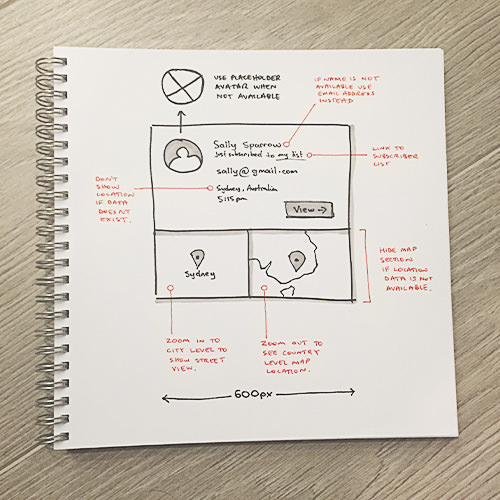 USE PLACEHOLDER
AVATAR WHEN
NOT AVAILABLE
IF NAME IS NOT
AVAILABLE USE
EMAIL ADDRESS
INSTEAD
Sally Sparrow
Just subscribed to my list
LINK TO
SUBSCRIBER
LIST
sally@gmail.com
DON'T
SHOW
LOCATION
IF DATA
DOESN'T
EXIST.
Sydney, Australia
5:15pm
View →
Sydney
HIDE MAP
SECTION
IF LOCATION
DATA IS NOT
AVAILABLE.
ZOOM IN TO
CITY LEVEL TO
SHOW STREET
VIEW.
ZOOM OUT TO
SEE COUNTRY
LEVEL MAP
LOCATION.
600px